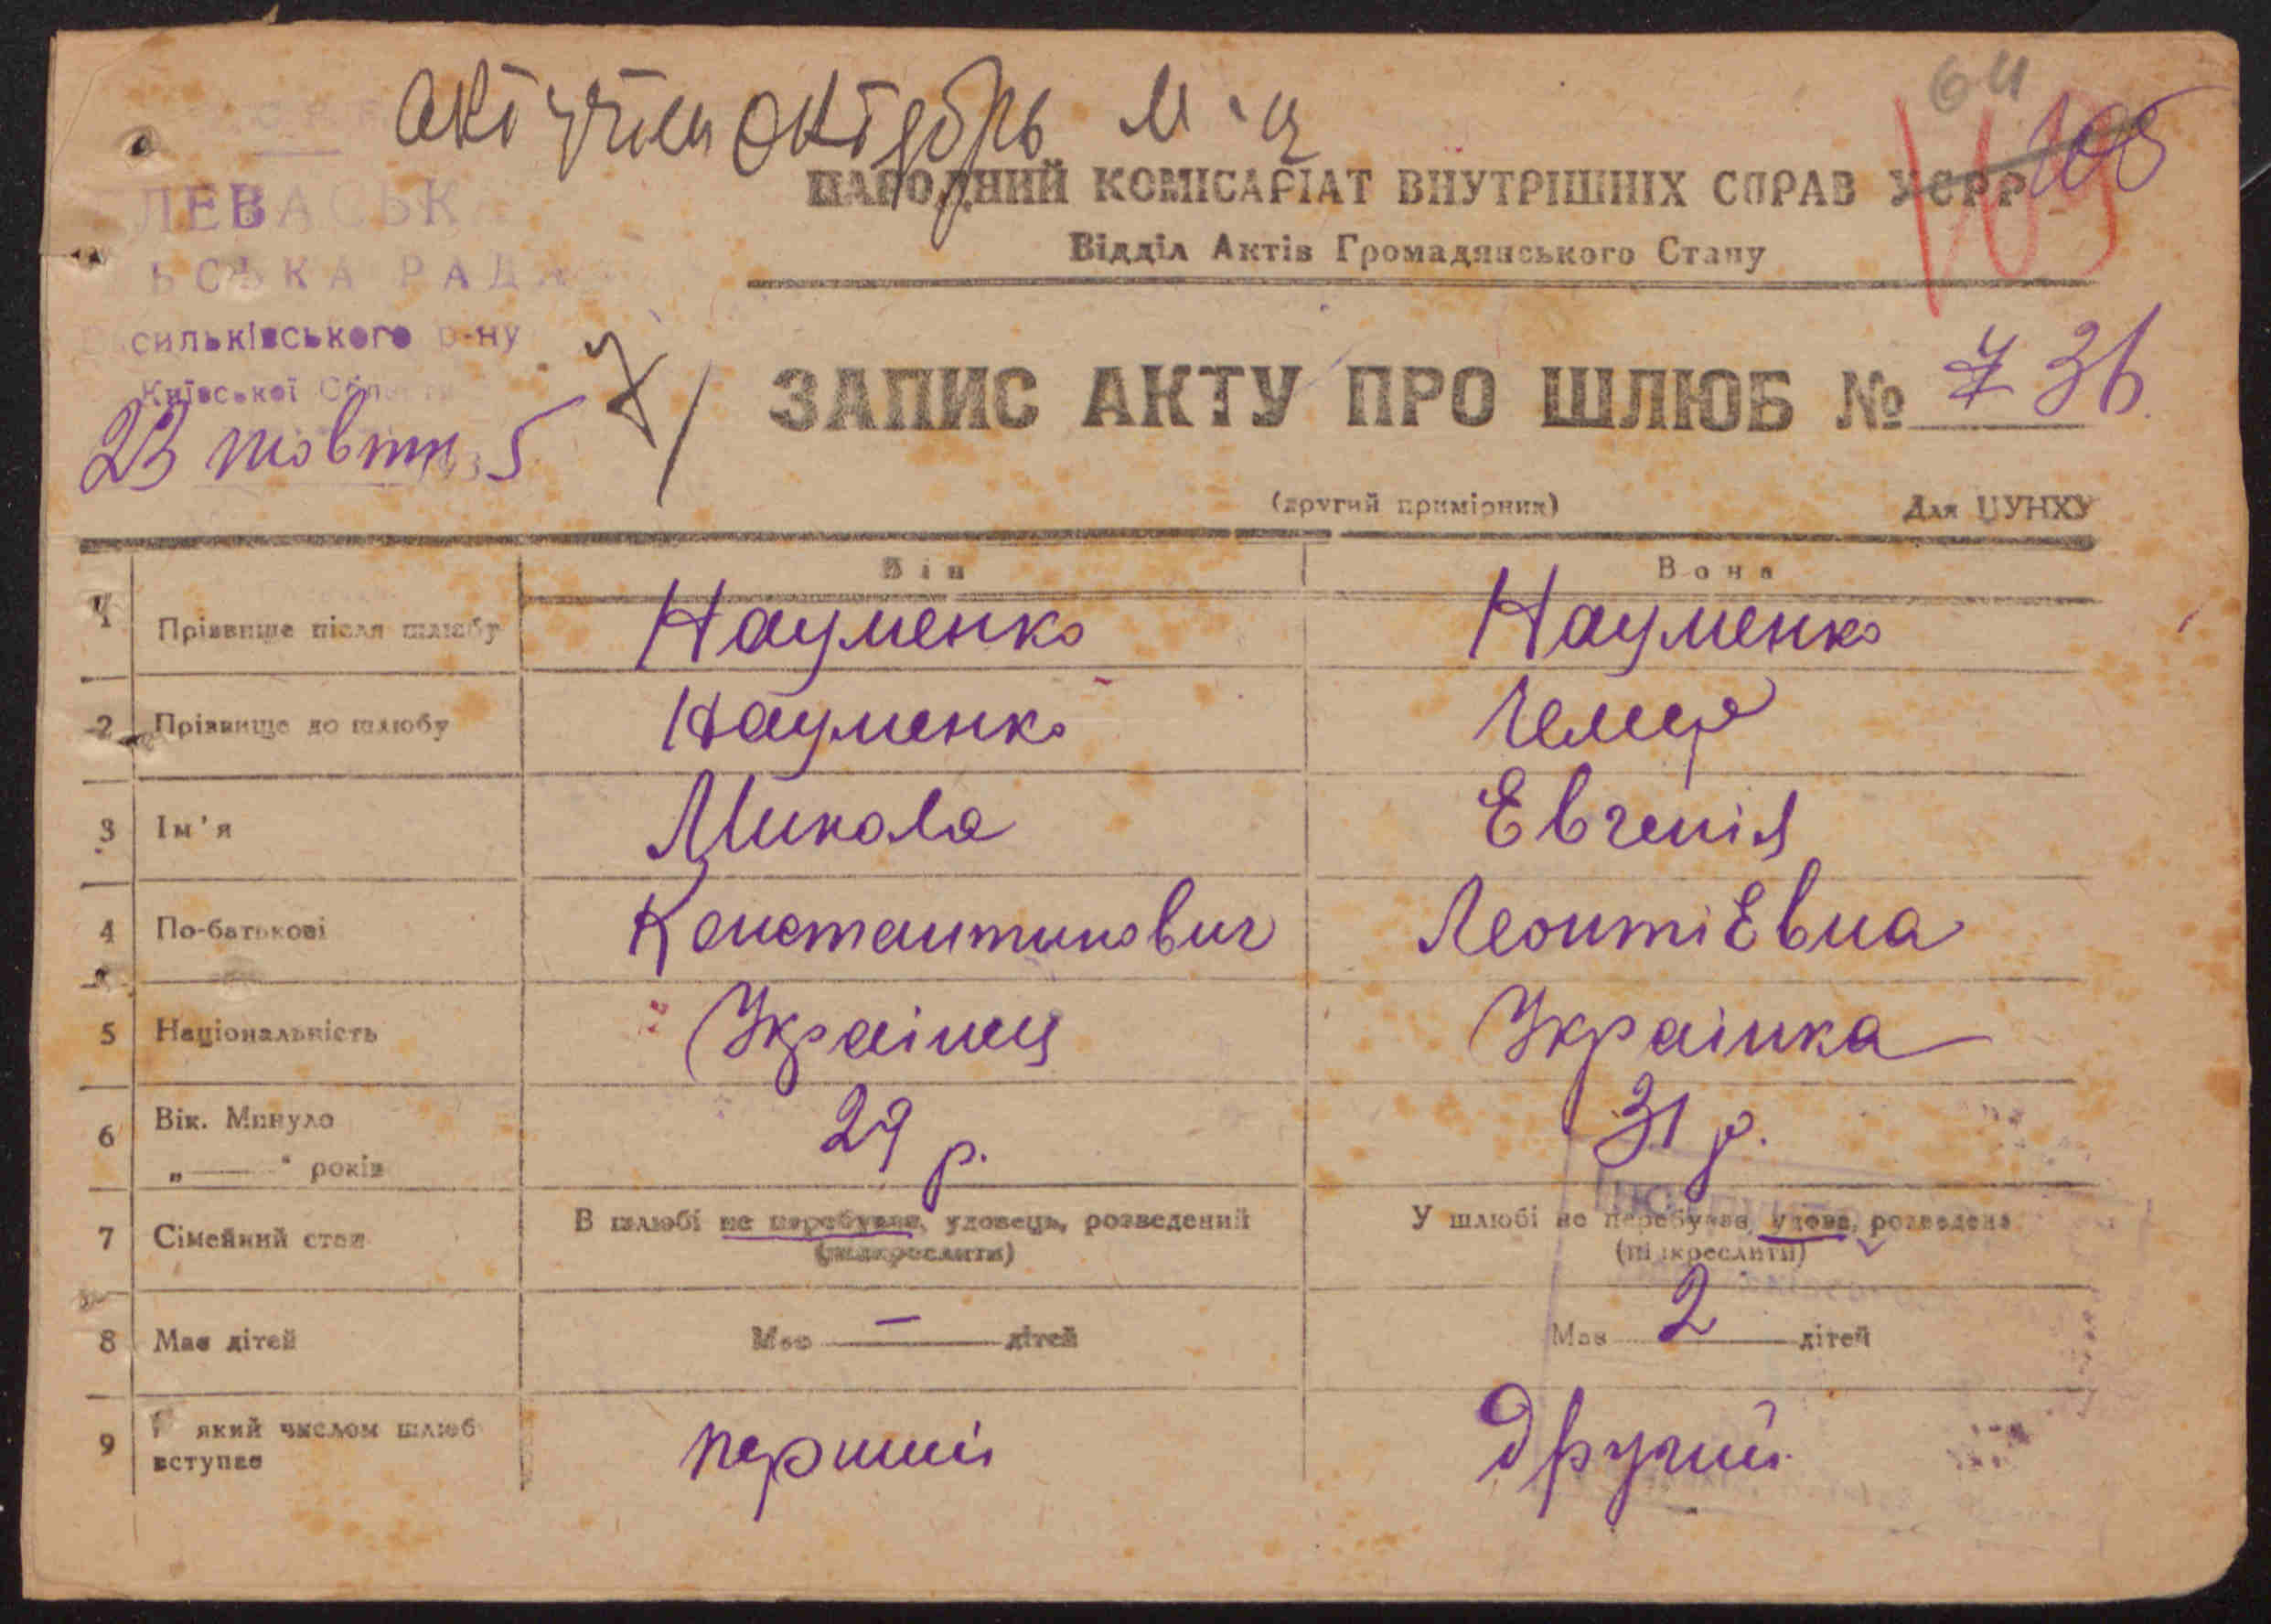 64
октябрь м-ц
105
109
ЛЕВАСЬК
ЬСЬКА РАДА
сильківського р-ну
Київської Обл
23 жовтня 1935
НАРОДНИЙ КОМІСАРІАТ ВНУТРІШНІХ СПРАВ УСРР
Відділ Актів Громадянського Стану
7/
ЗАПИС АКТУ ПРО ШЛЮБ № 7 36
(другий примірник) Для ЦУНХУ
Він Вона
1 Прізвище після шлюбу Науменко Науменко
2 Прізвище до шлюбу Науменко
3 Ім'я Микола Евгенія
4 По-батькові Константинович ЛеонтіЕвна
5 Національність Украінец Украінка
6 Вік. Минуло 29 р. 31 р.
„ — “ років
7 Сімейний стан В шлюбі не перебував, удовець, розведений У шлюбі не перебувала, удова, розведена
(підкреслити) (підкреслити)
8 Має дітей Має — дітей Має 2 дітей
9 який числом шлюб вступає перший другий